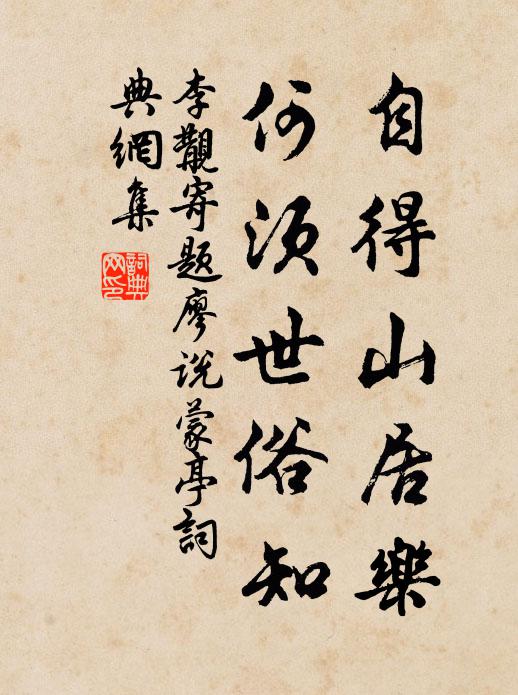 自得山居樂
何須世俗知
李覯寄題廖說蒙亭詞
典網集
詞典網印